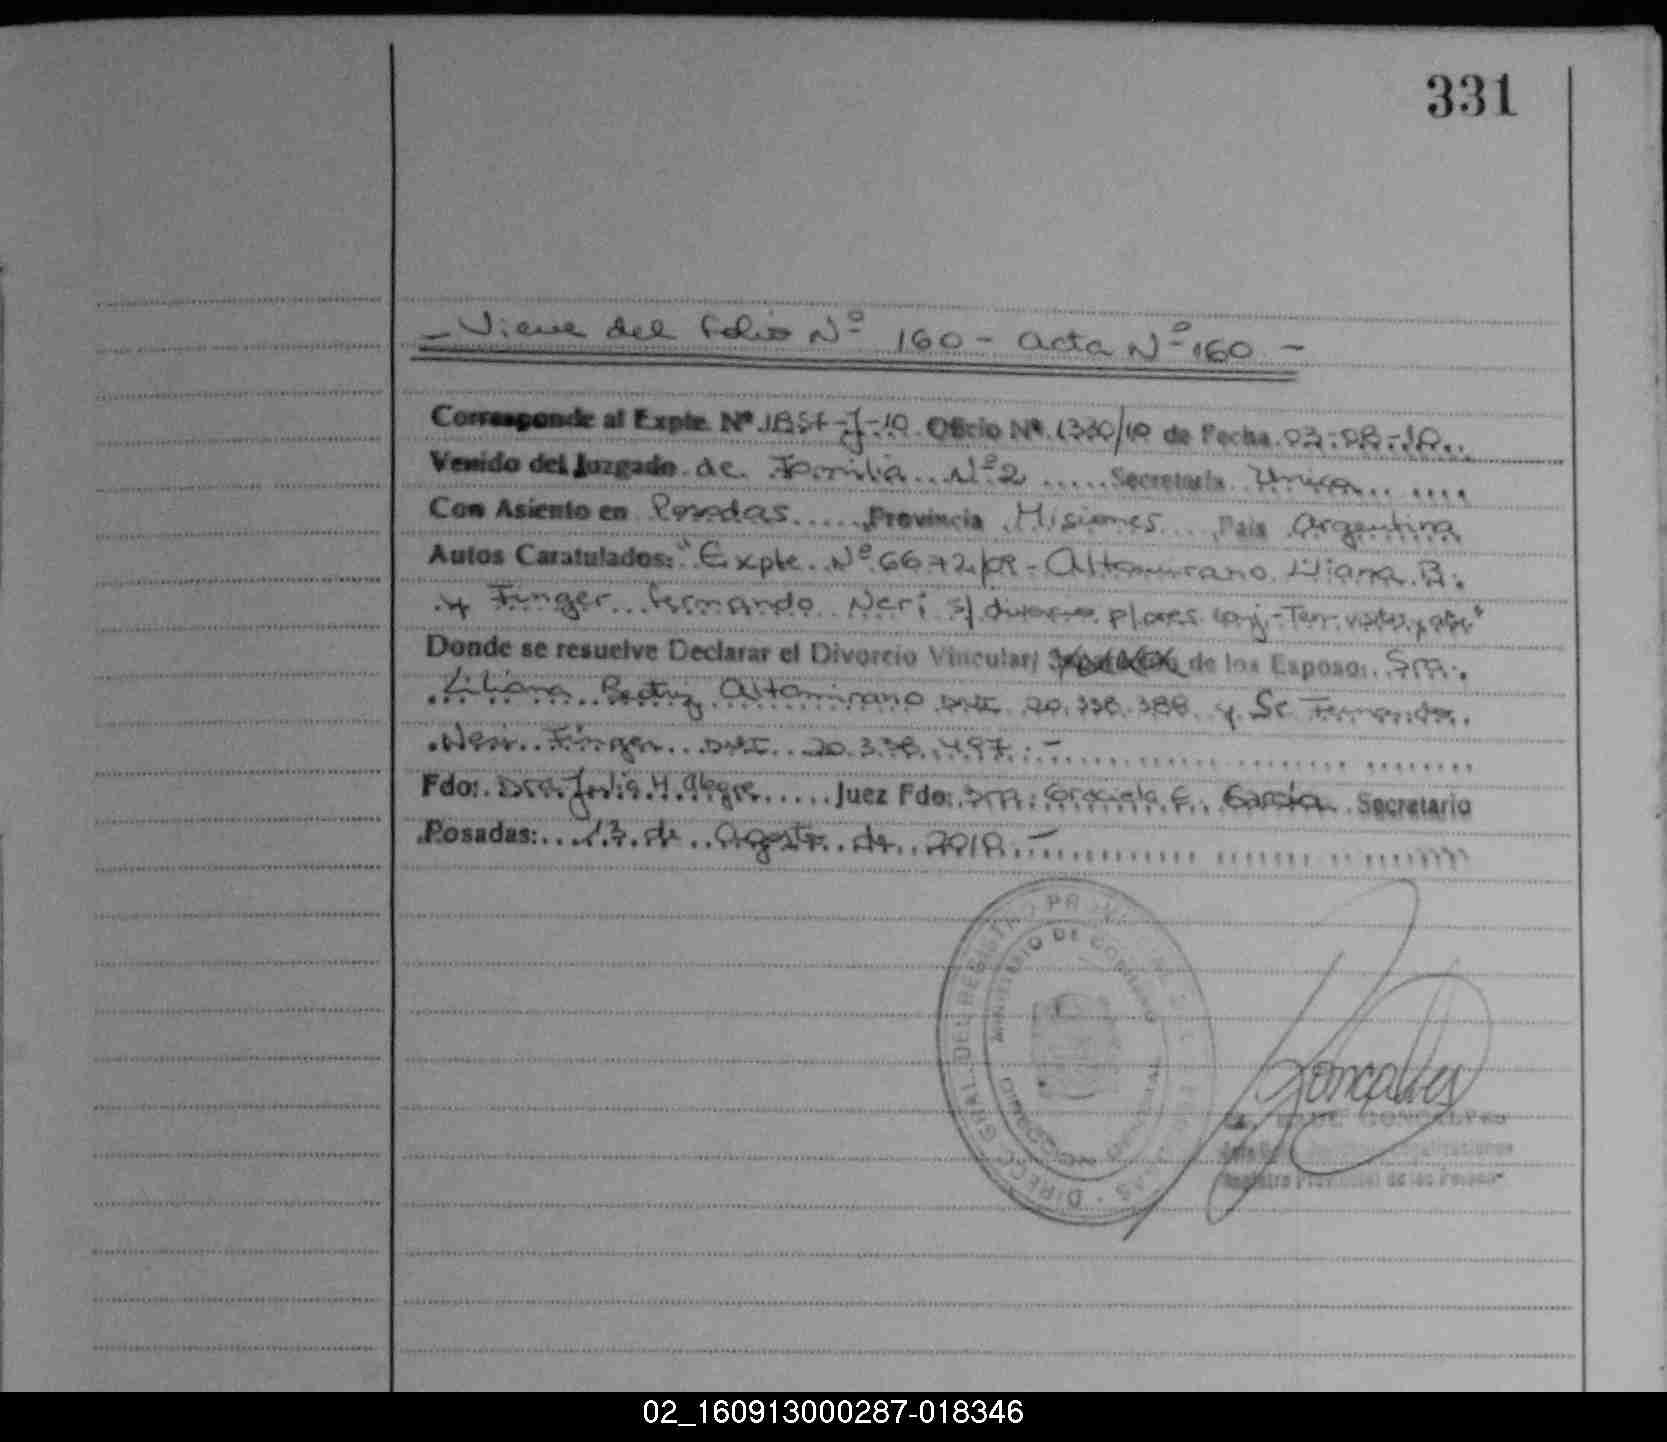 331
- Viene del folio Nº 160 - acta Nº 160 -
Corresponde al Expte. Nº Oficio Nº 1330/10 de Fecha 03-08-10
Venido del Juzgado de Familia Nº 2 Secretaria Unica
Con Asiento en Posadas Provincia Misiones Pais Argentina
Autos Caratulados: "Expte. Nº 6672/09 - Altamirano Liliana B.
y Finger Fernando Neri s/ divorcio p/ pres. conj.
Donde se resuelve Declarar el Divorcio Vincular/ de los Esposo: Sra.
Liliana Beatriz Altamirano DNI 20.338.388 y Sr Fernando
Neri Finger DNI 20.338.497. -
Fdo: Dra. Julia H. Alegre Juez Fdo: Dra. Graciela E. Garcia Secretario
Posadas: 13 de Agosto de 2010 -
DIREC. GRAL. DEL REGISTRO PROV. DE LAS
MINISTERIO DE GOBIERNO
Goncalves
GONCALVES
Registro Provincial de las Personas
02_160913000287-018346